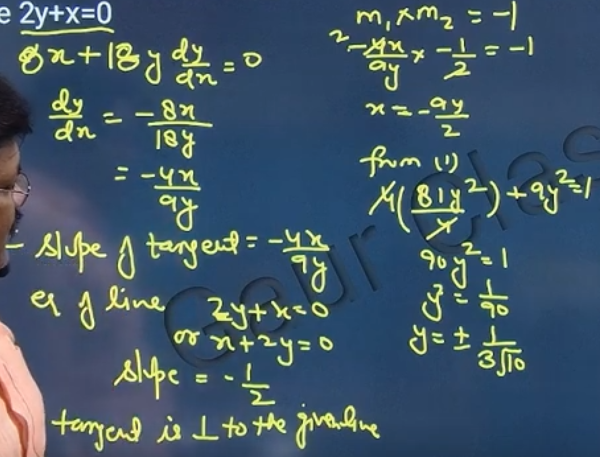 e 2y+x=0
8x+18y dy/dx = 0
dy/dx = -8x/18y
= -4x/9y
- slope of tangent = -4x/9y
eq of line 2y+x=0
or x+2y=0
slope = -1/2
tangent is ⊥ to the given line
m₁×m₂ = -1
2 -4x/9y × -1/2 = -1
x = -9y/2
from (1)
4(81y²/4)+9y²=1
90y²=1
y² = 1/90
y = ± 1/3√10
Gaur Clas